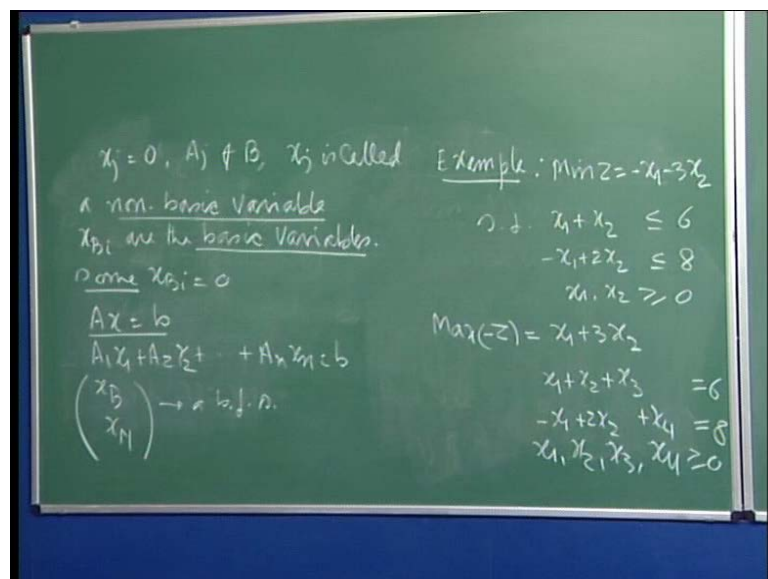 xj = 0, Aj ∉ B, xj is called
a non-basic variable
xBi are the basic variables.
some xBi = 0
Ax = b
A1x1+A2x2+ .. + Anxn = b
(xB
xN) → a b.f.s.
Example: Min Z = -x1-3x2
s.t. x1+x2 ≤ 6
-x1+2x2 ≤ 8
x1, x2 ≥ 0
Max(-Z) = x1+3x2
x1+x2+x3 = 6
-x1+2x2 +x4 = 8
x1, x2, x3, x4 ≥ 0